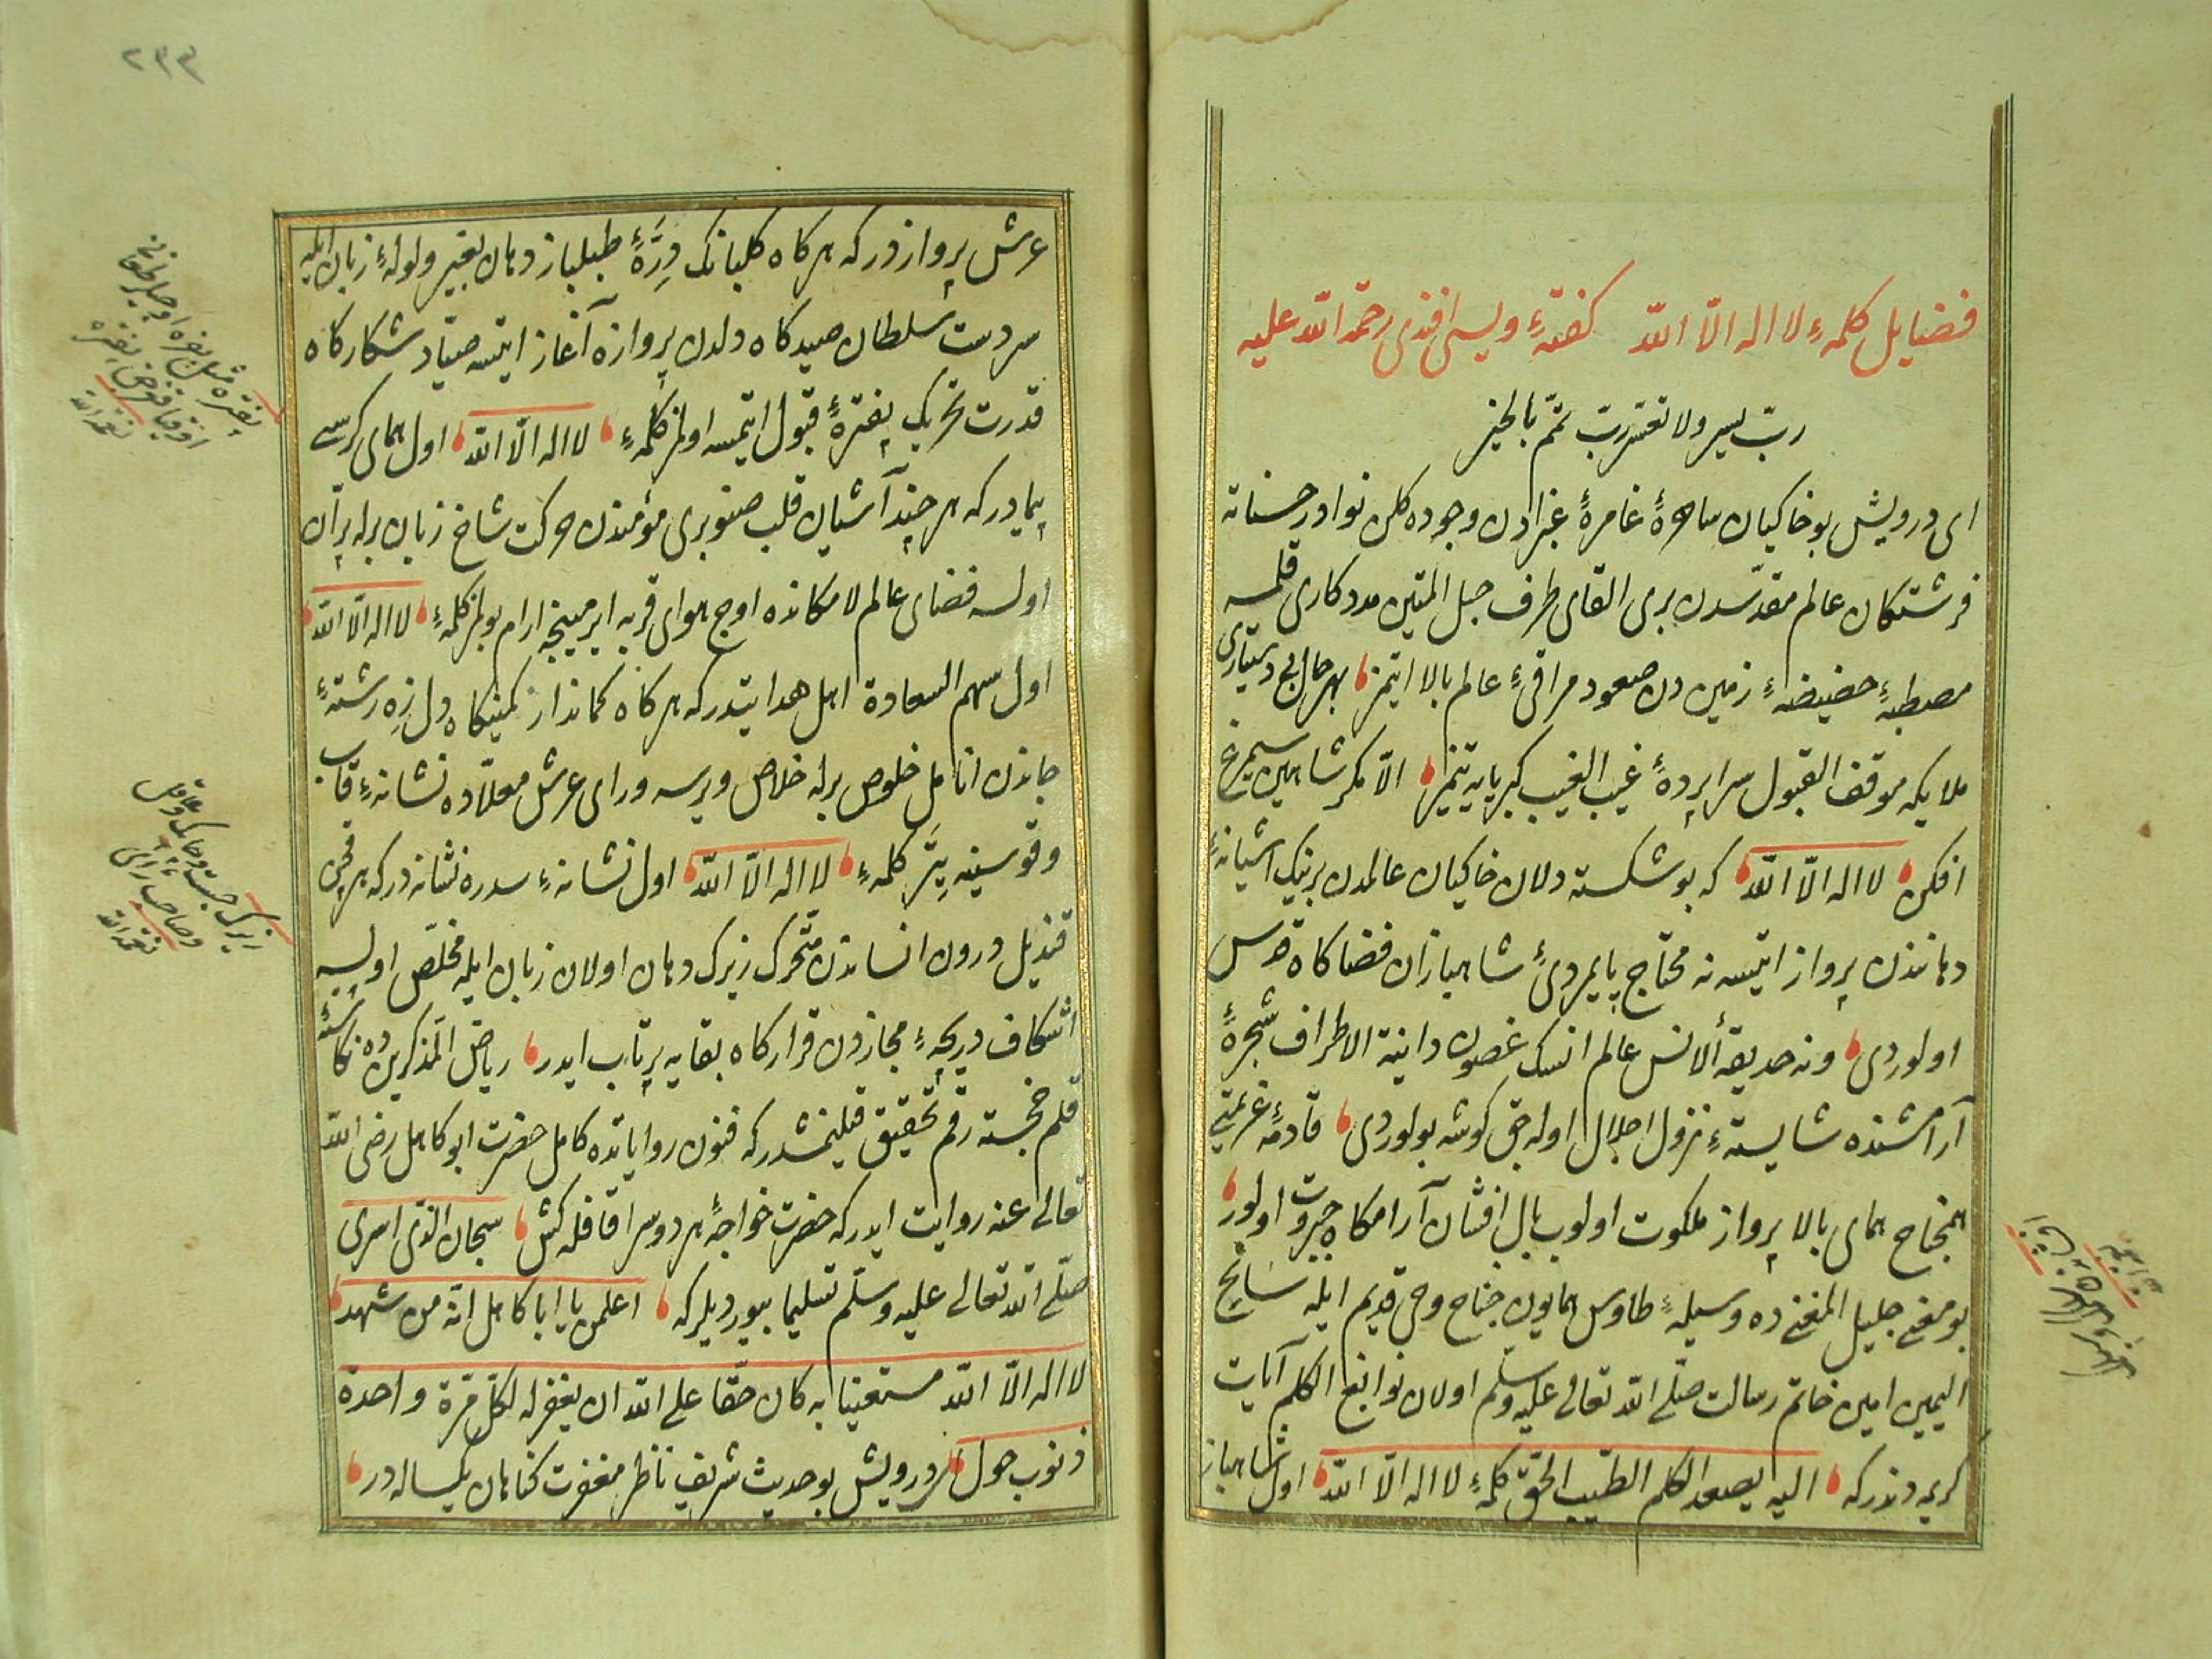 فضایل کلمۀ لا اله الّا الله کفتۀ ویسی افندی رحمة الله علیه
ربّ یسر ولا تعسّر ربّ تمّم بالخیر
ای درویش بو خاکیان ساهرۀ غامرۀ غبرادن وجوده کلن نوادر حسناته
فرشتکان عالم مقدّسدن بری القای طرف حبل المتین مددکاری قلمسه
مصطبۀ حضیضۀ زمین دن صعود مراقیۀ عالم بالا ایتمز بهر حال بی دستیاری
ملایکه موقف القبول سراپردۀ غیب الغیب کبریایه یتمز الّا مکر شاهین سیمرغ
افکن لا اله الّا الله که بو شکسته دلان خاکیان عالمدن برینک آشیانۀ
دهانندن پرواز ایتسه نه محتاج پایمردیٔ شاهبازان فضاکاه قدس
اولوردی ونه حدیقۀ الانس عالم انسک غصون دانیة الاطراف شجرۀ
آرامشنده شایستۀ نزول اجلال اوله جق کوشه بولوردی قادمۀ عزیمتی
همجناح همای بالا پرواز ملکوت اولوب بال افشان آرامکاه جبروت اولور
بو معنی جلیل المغنی ده وسیلۀ طاوس همایون جناح وحی قدیم ایله سانح
الیمین امین خاتم رسالت صلّی الله تعالی علیه وسلّم اولان نوابغ الکلم آیات
کریمه دندرکه الیه یصعد الکلم الطیب الحق کلمۀ لا اله الّا الله اول شاهباز
٢٣٣
عرش پرواز درکه هرکاه کلبانک درّۀ طبلباز دهان بغیر ولولۀ زبان ایله
سردست سلطان صیدکاه دلدن پروازه آغاز ایتسه صیّاد شکارکاه
قدرت تحریک پفترۀ قبول ایتمسه اولمز کلمۀ لا اله الّا الله اول همای کرسی
پیمادرکه هر چند آشیان قلب صنوبری مؤمندن حرکت شاخ زبان برله پرّان
اولسه فضای عالم لا مکانده اوج هوای قربه ایرمینجه ارام بولمز کلمۀ لا اله الّا الله
اول سهم السعادة اهل هدایتدرکه هرکاه کماندار کمینکاه دل زه رشتۀ
جاندن انامل خلوص برله خلاص ویرسه ورای عرش معلّاده نشانۀ قاب
وقوسینه یتر کلمۀ لا اله الّا الله اول نشانۀ سدره نشانه درکه هر قچن
قندیل درون انساندن متحرک زیرک دهان اولان زبان ایله مخلّص اولسه
اشکاف دریچۀ مجازدن قرارکاه بقایه پرتاب ایدر ریاض المذکرین ده نکاشتۀ
قلم خجسته رقم تحقیق قلینمشدرکه فنون روایاتده کامل حضرت ابو کاهل رضی الله
تعالی عنه روایت ایدرکه حضرت خواجۀ هر دوسرا قافله کش سبحان الذّی اسری
صلّی الله تعالی علیه وسلّم تسلیما بیوردیلرکه اعلمن یا ابا کاهل انّه من شهد
لا اله الّا الله مستعینا به کان حقّا علی الله ان یغفر له لکلّ مرّة واحدة
ذنوب حول درویش بو حدیث شریف ناظر مغفرت کناهان یکساله در